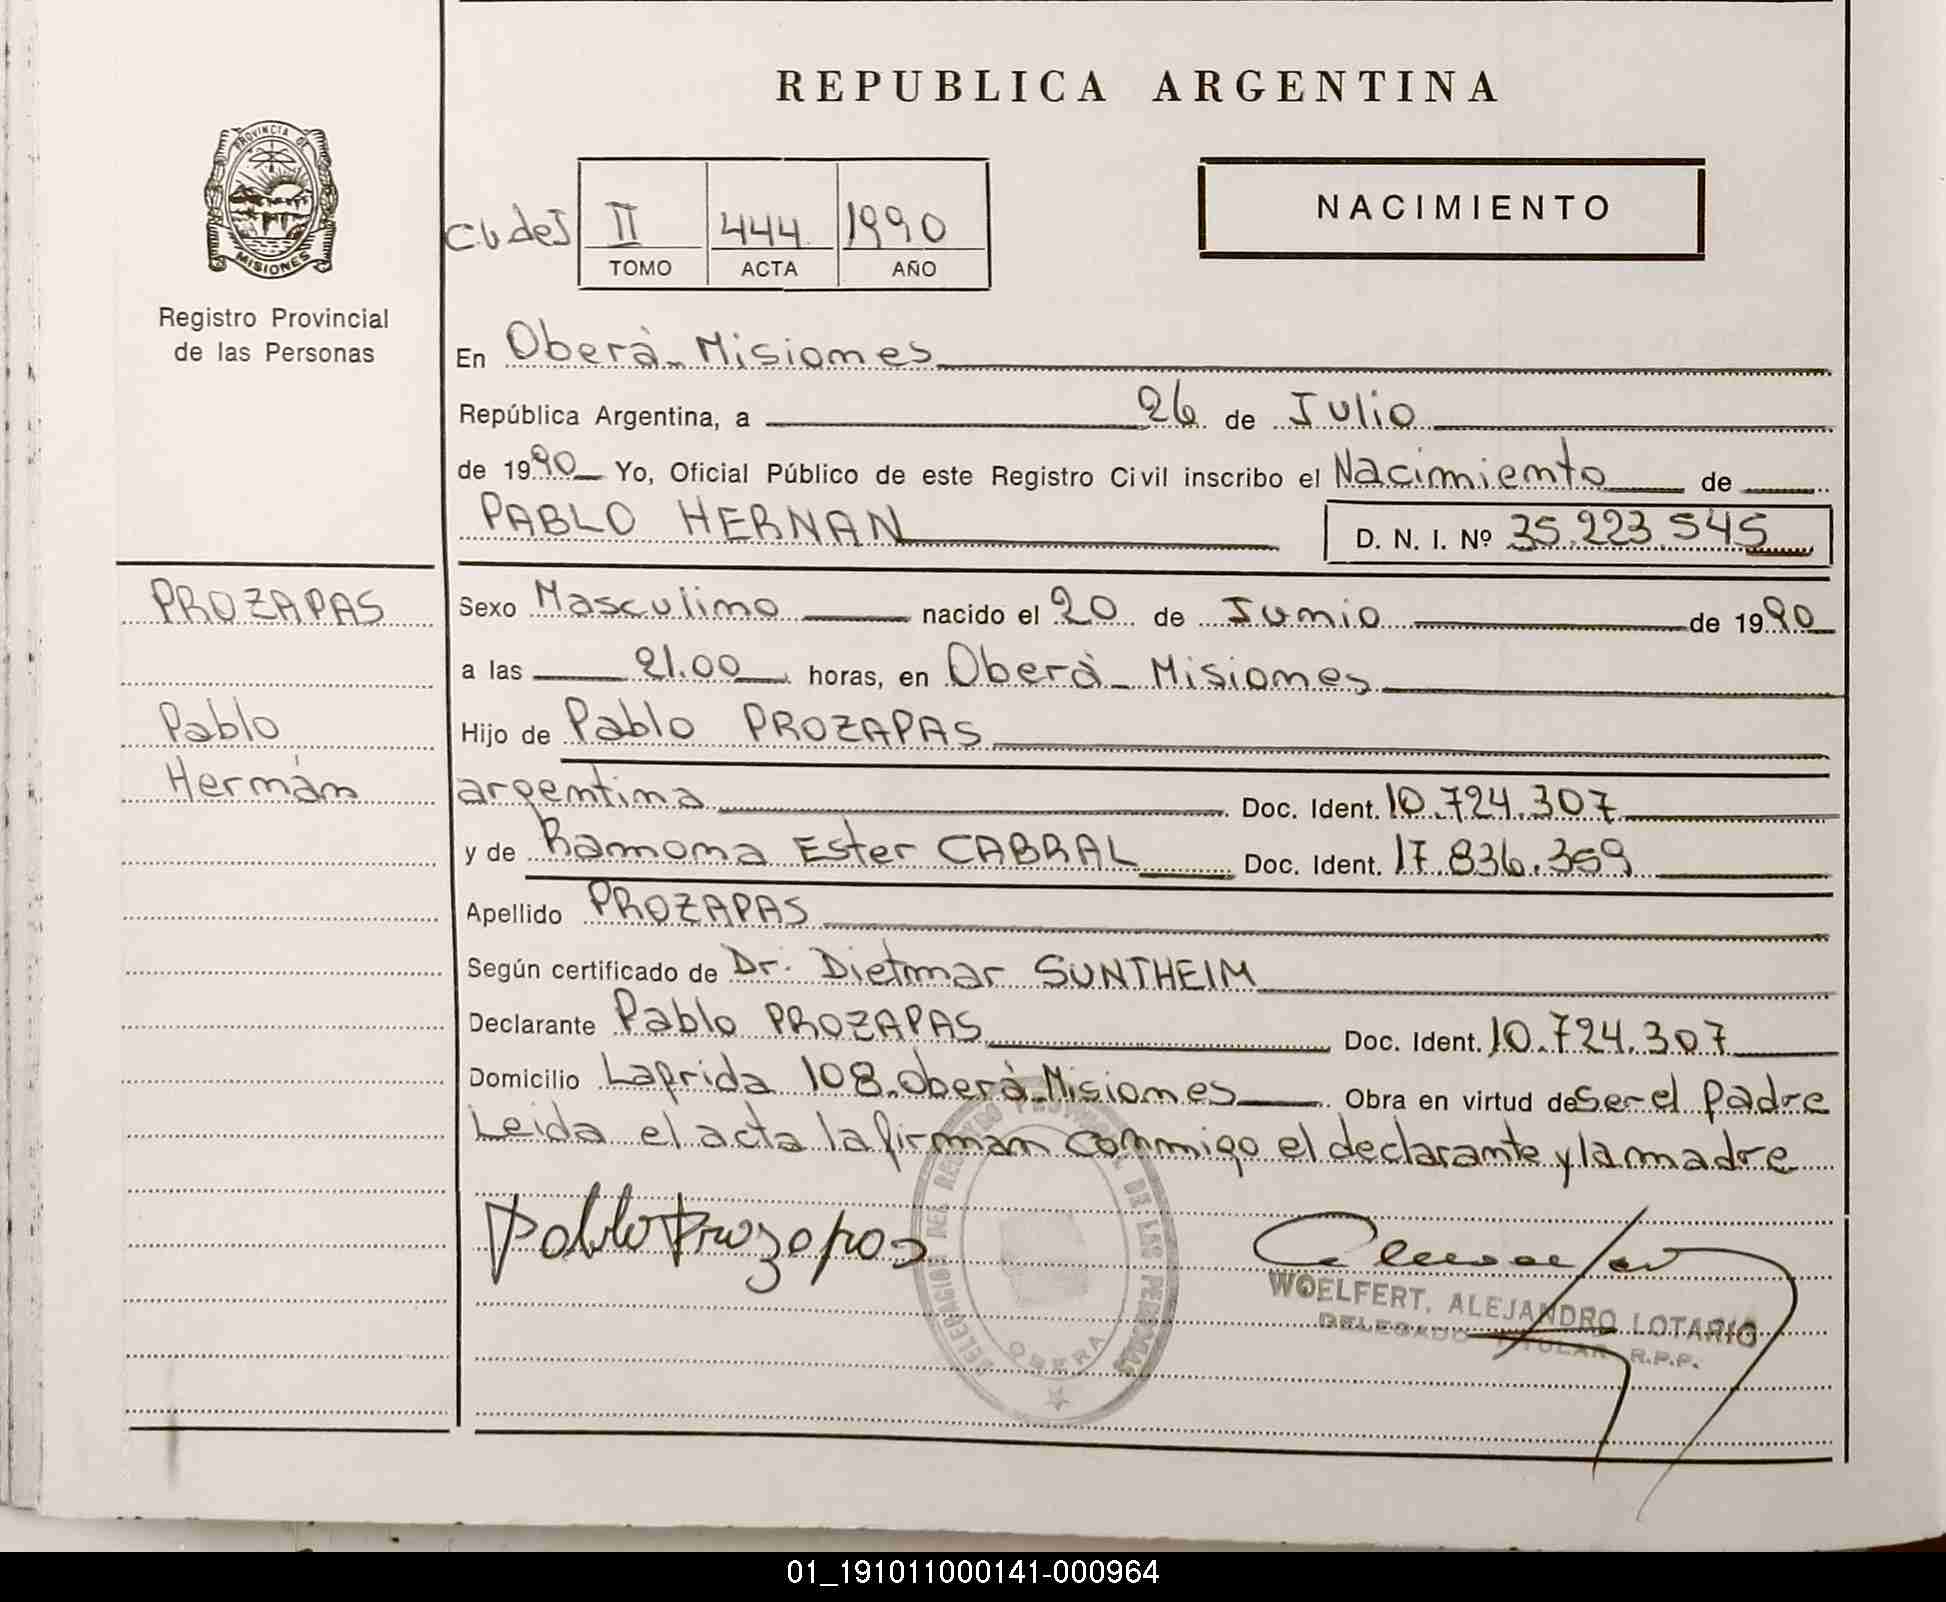 REPUBLICA ARGENTINA
PROVINCIA DE
MISIONES
Registro Provincial
de las Personas
II 444 1990
TOMO ACTA AÑO
NACIMIENTO
En Oberà_ Misiones
República Argentina, a 26 de Julio
de 1990 Yo, Oficial Público de este Registro Civil inscribo el Nacimiento de
PABLO HERNAN D. N. I. Nº 35.223.545
PROZAPAS
Pablo
Hernán
Sexo Masculino nacido el 20 de Junio de 1990
a las 21.00 horas, en Oberà_ Misiones
Hijo de Pablo PROZAPAS
argentina Doc. Ident. 10.724.307
y de Ramona Ester CABRAL Doc. Ident. 17.836.359
Apellido PROZAPAS
Según certificado de Dr. Dietmar SUNTHEIM
Declarante Pablo PROZAPAS Doc. Ident. 10.724.307
Domicilio Laprida 108. Oberà_Misiones Obra en virtud de Ser el padre
Leida el acta la firman conmigo el declarante y la madre
Pablo Prozapas
DELEGACION DEL REGISTRO PROVINCIAL DE LAS PERSONAS
OBERA
WOELFERT, ALEJANDRO LOTARIO
DELEGADO TITULAR R.P.P.
01_191011000141-000964